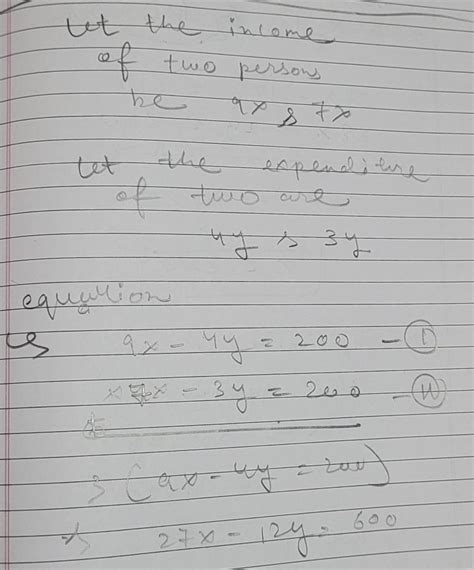 Let the income
of two persons
be 9x & 7x
Let the expenditure
of two are
4y & 3y
equation
9x - 4y = 200 - (I)
7x - 3y = 200 - (II)
3 (9x - 4y = 200)
27x - 12y = 600